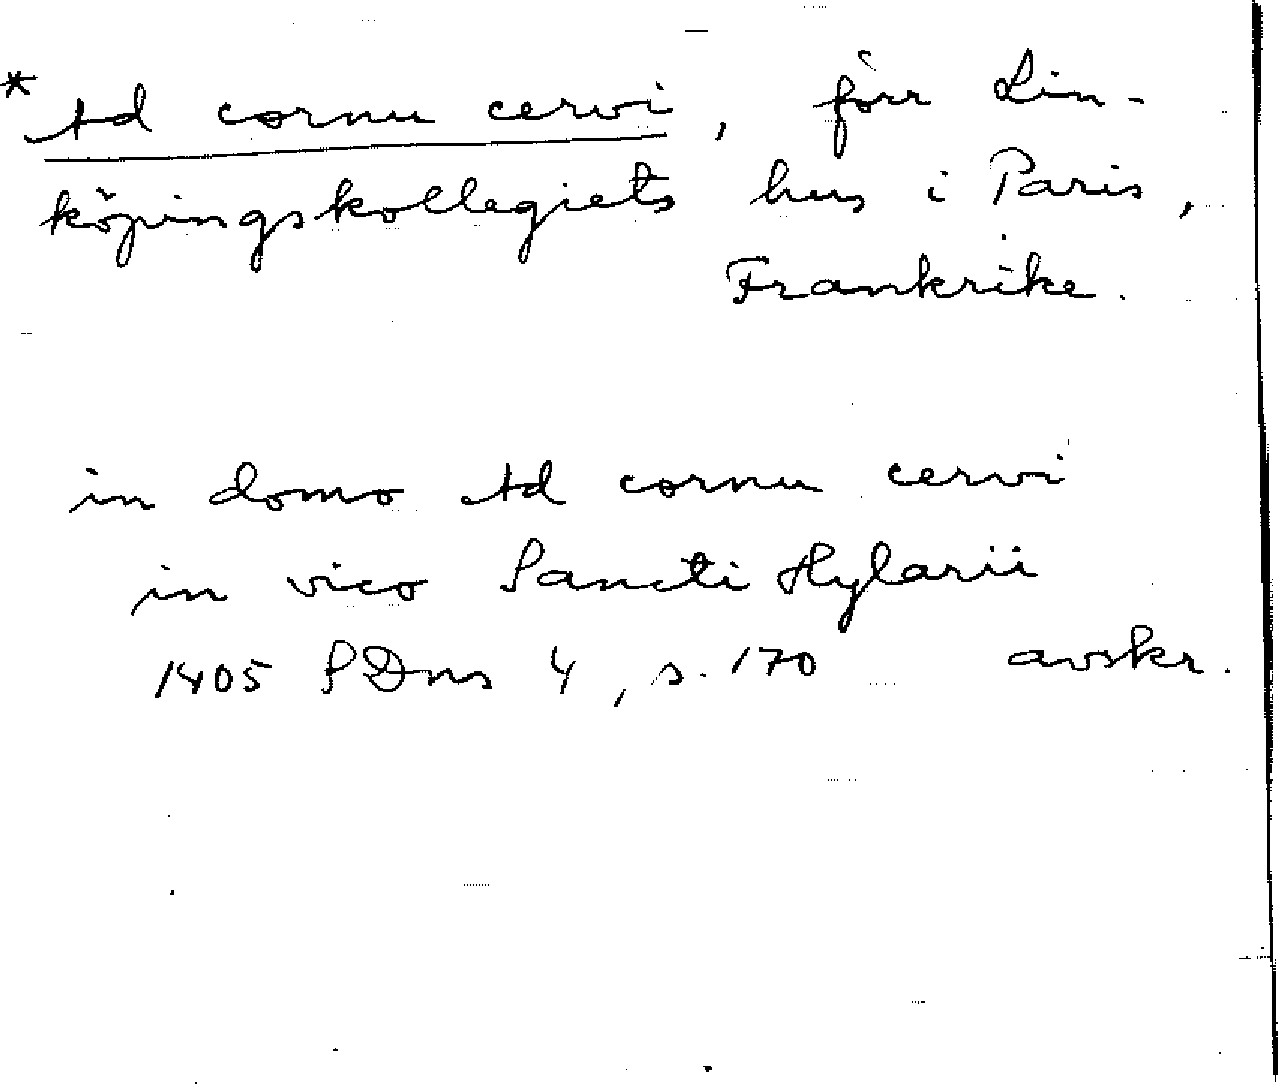 * Ad cornu cervi, förr Lin-
köpingskollegiets hus i Paris,
Frankrike.
in domo Ad cornu cervi
in vico Sancti Hylarii
1405 SDns 4, s. 170 avskr.